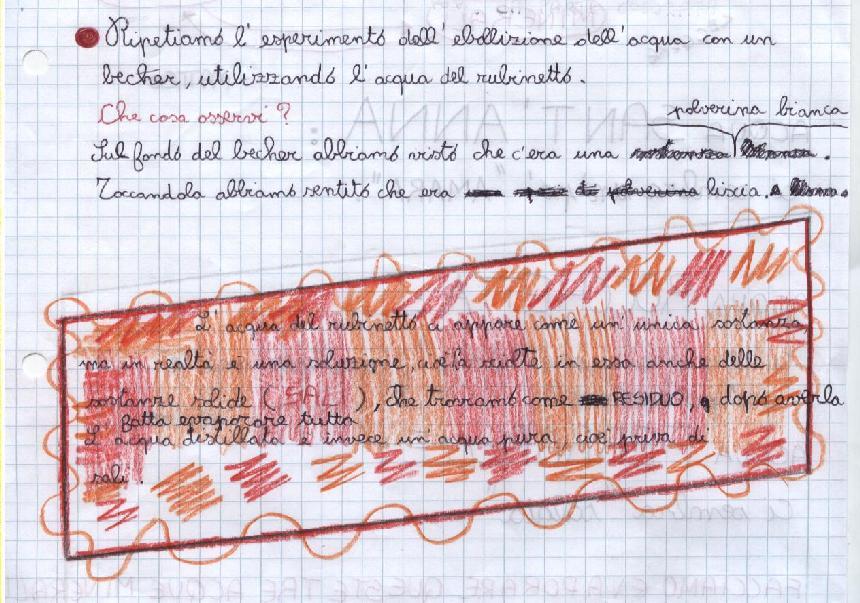 Ripetiamo l'esperimento dell'ebollizione dell'acqua con un
becher, utilizzando l'acqua del rubinetto.
Che cosa osservi?
polverina bianca
Sul fondo del becher abbiamo visto che c'era una .
Toccandola abbiamo sentito che era polverina liscia.
L'acqua del rubinetto ci appare come un'unica sostanza
ma in realtà è una soluzione, cioè ha sciolte in essa anche delle
sostanze solide (SALI), che troviamo come RESIDUO, dopo averla
fatta evaporare tutta
L'acqua distillata è invece un'acqua pura, cioè priva di
sali.